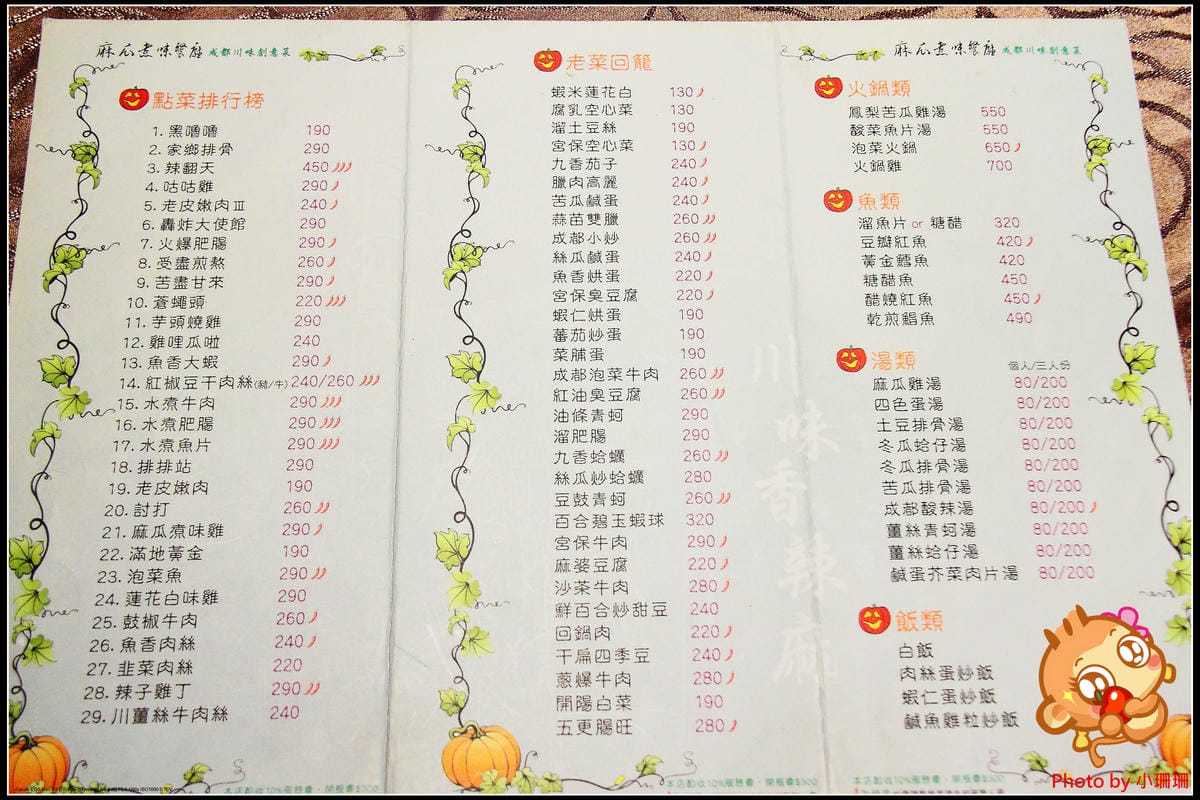 麻瓜煮味餐廳 成都川味創意菜
點菜排行榜
1. 黑嚕嚕 190
2. 家鄉排骨 290
3. 辣翻天 450
4. 咕咕雞 290
5. 老皮嫩肉Ⅲ 240
6. 轟炸大使館 290
7. 火爆肥腸 290
8. 受盡煎熬 260
9. 苦盡甘來 290
10. 蒼蠅頭 220
11. 芋頭燒雞 290
12. 雞哩瓜啦 240
13. 魚香大蝦 290
14. 紅椒豆干肉絲(豬/牛) 240/260
15. 水煮牛肉 290
16. 水煮肥腸 290
17. 水煮魚片 290
18. 排排站 290
19. 老皮嫩肉 190
20. 討打 260
21. 麻瓜煮味雞 290
22. 滿地黃金 190
23. 泡菜魚 290
24. 蓮花白味雞 290
25. 鼓椒牛肉 260
26. 魚香肉絲 240
27. 韭菜肉絲 220
28. 辣子雞丁 290
29. 川薑絲牛肉絲 240
老菜回籠
蝦米蓮花白 130
腐乳空心菜 130
溜土豆絲 190
宮保空心菜 130
九香茄子 240
臘肉高麗 240
苦瓜鹹蛋 240
蒜苗雙臘 260
成都小炒 260
絲瓜鹹蛋 240
魚香烘蛋 220
宮保臭豆腐 220
蝦仁烘蛋 190
蕃茄炒蛋 190
菜脯蛋 190
成都泡菜牛肉 260
紅油臭豆腐 260
油條青蚵 290
溜肥腸 290
九香蛤蠣 260
絲瓜炒蛤蠣 280
豆鼓青蚵 260
百合碧玉蝦球 320
宮保牛肉 290
麻婆豆腐 220
沙茶牛肉 280
鮮百合炒甜豆 240
回鍋肉 220
干扁四季豆 240
蔥爆牛肉 280
開陽白菜 190
五更腸旺 280
川味香辣麻
麻瓜煮味餐廳 成都川味創意菜
火鍋類
鳳梨苦瓜雞湯 550
酸菜魚片湯 550
泡菜火鍋 650
火鍋雞 700
魚類
溜魚片 or 糖醋 320
豆瓣紅魚 420
黃金鱈魚 420
糖醋魚 450
醋燒紅魚 450
乾煎鯧魚 490
湯類 個人/三人份
麻瓜雞湯 80/200
四色蛋湯 80/200
土豆排骨湯 80/200
冬瓜蛤仔湯 80/200
冬瓜排骨湯 80/200
苦瓜排骨湯 80/200
成都酸辣湯 80/200
薑絲青蚵湯 80/200
薑絲蛤仔湯 80/200
鹹蛋芥菜肉片湯 80/200
飯類
白飯
肉絲蛋炒飯
蝦仁蛋炒飯
鹹魚雞粒炒飯
Photo by 小珊珊